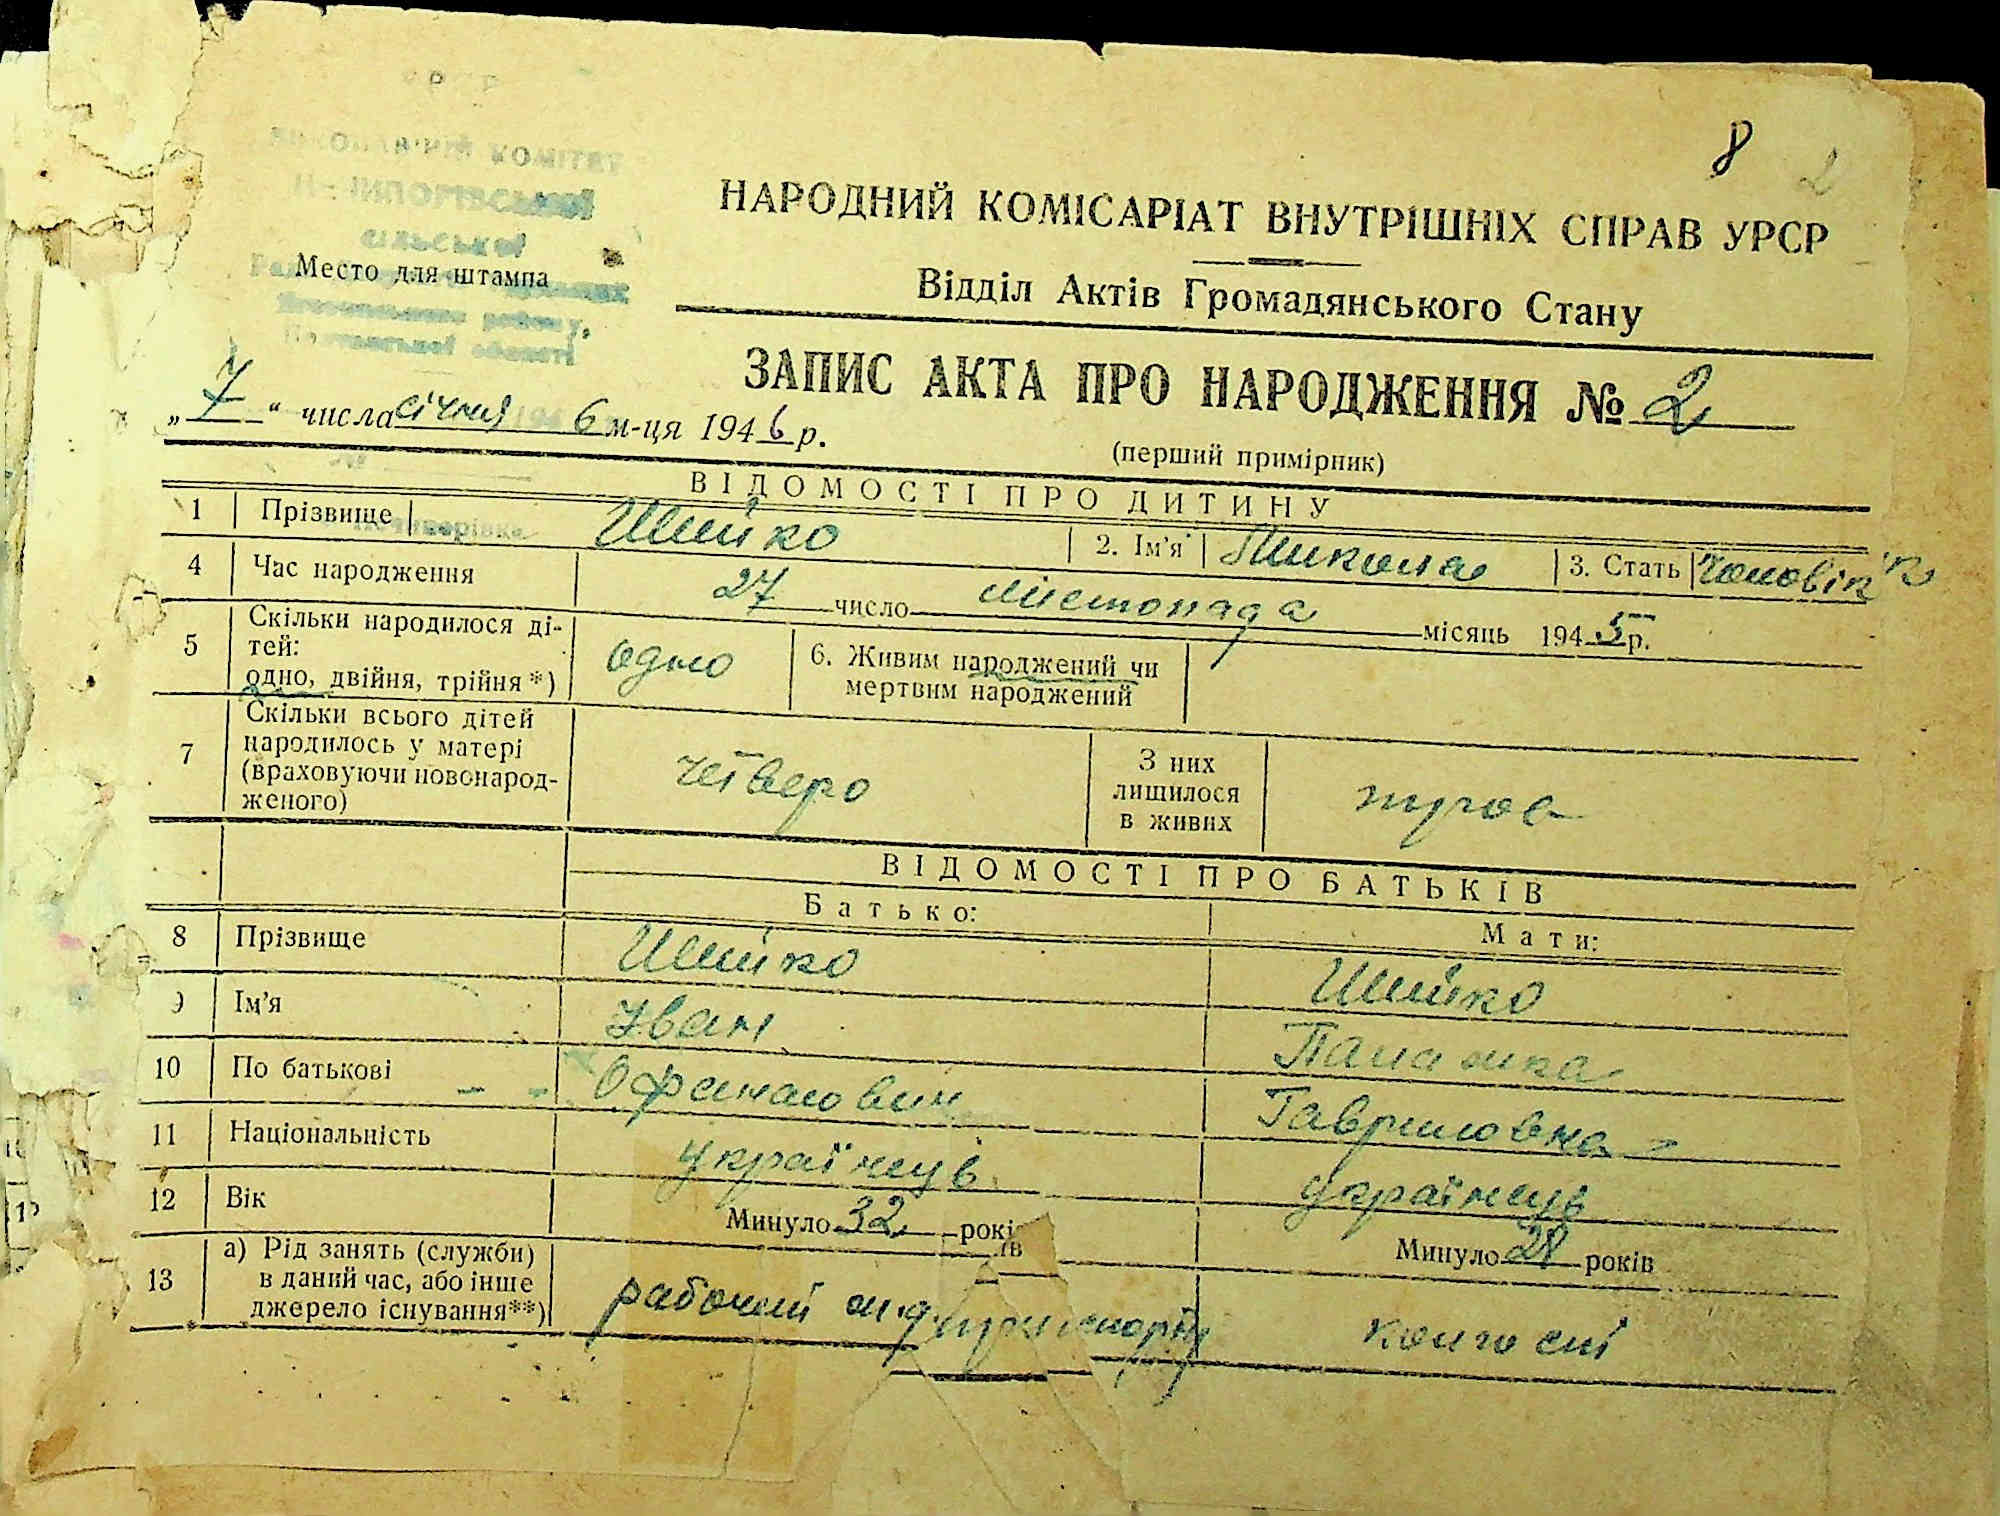 8 2
ВИКОНАВЧИЙ КОМІТЕТ
сільської
району,
Полтавської області
НАРОДНИЙ КОМІСАРІАТ ВНУТРІШНІХ СПРАВ УРСР
Место для штампа
Відділ Актів Громадянського Стану
ЗАПИС АКТА ПРО НАРОДЖЕННЯ № 2
„7“ числа січня м-ця 1946 р.
(перший примірник)
ВІДОМОСТІ ПРО ДИТИНУ
1 Прізвище Шийко 2. Ім'я Микола 3. Стать Чоловік
4 Час народження 27 число листопада місяць 1945 р.
5 Скільки народилося ді-
тей:
одно, двійня, трійня *) одно 6. Живим народжений чи
мертвим народжений
7 Скільки всього дітей
народилось у матері
(враховуючи новонарод-
женого) четверо З них
лишилося
в живих троє
ВІДОМОСТІ ПРО БАТЬКІВ
Батько: Мати:
8 Прізвище Шийко Шийко
9 Ім'я Іван Палажка
10 По батькові Офанасович Гавриловна
11 Національність українець українець
12 Вік Минуло 32 років Минуло 28 років
13 а) Рід занять (служби)
в даний час, або інше
джерело існування**) рабочий колгоспі